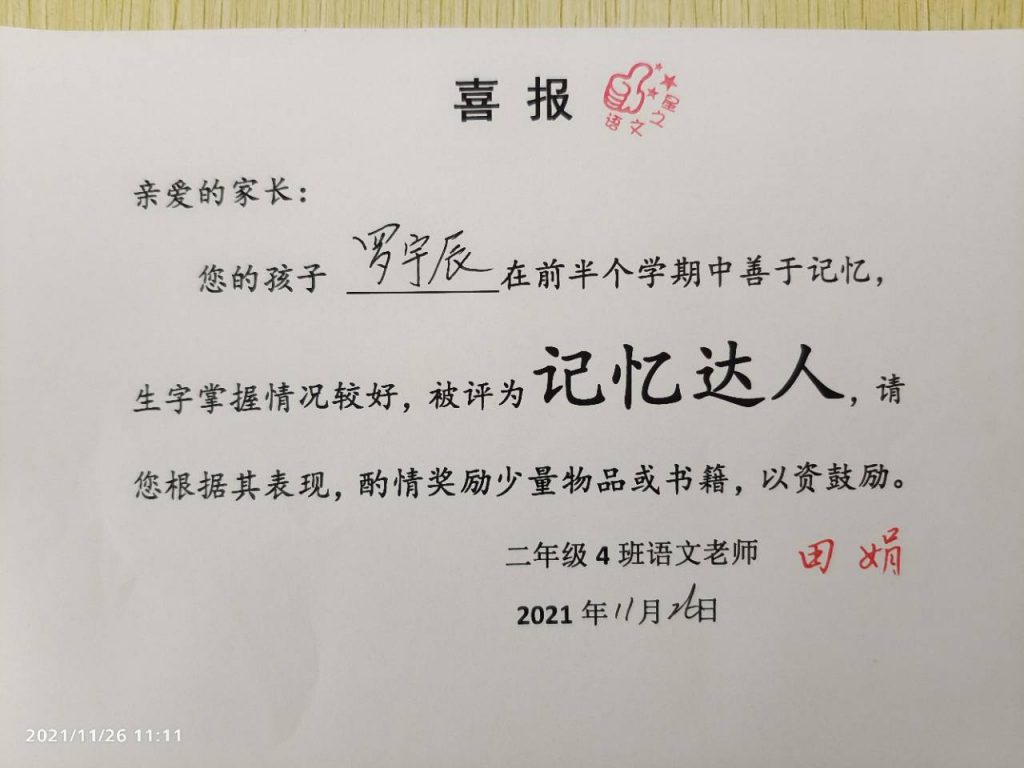 喜报
语文之星
亲爱的家长：
您的孩子 罗宇辰 在前半个学期中善于记忆，
生字掌握情况较好，被评为记忆达人，请
您根据其表现，酌情奖励少量物品或书籍，以资鼓励。
二年级4班语文老师 田娟
2021年11月26日
2021/11/26 11:11